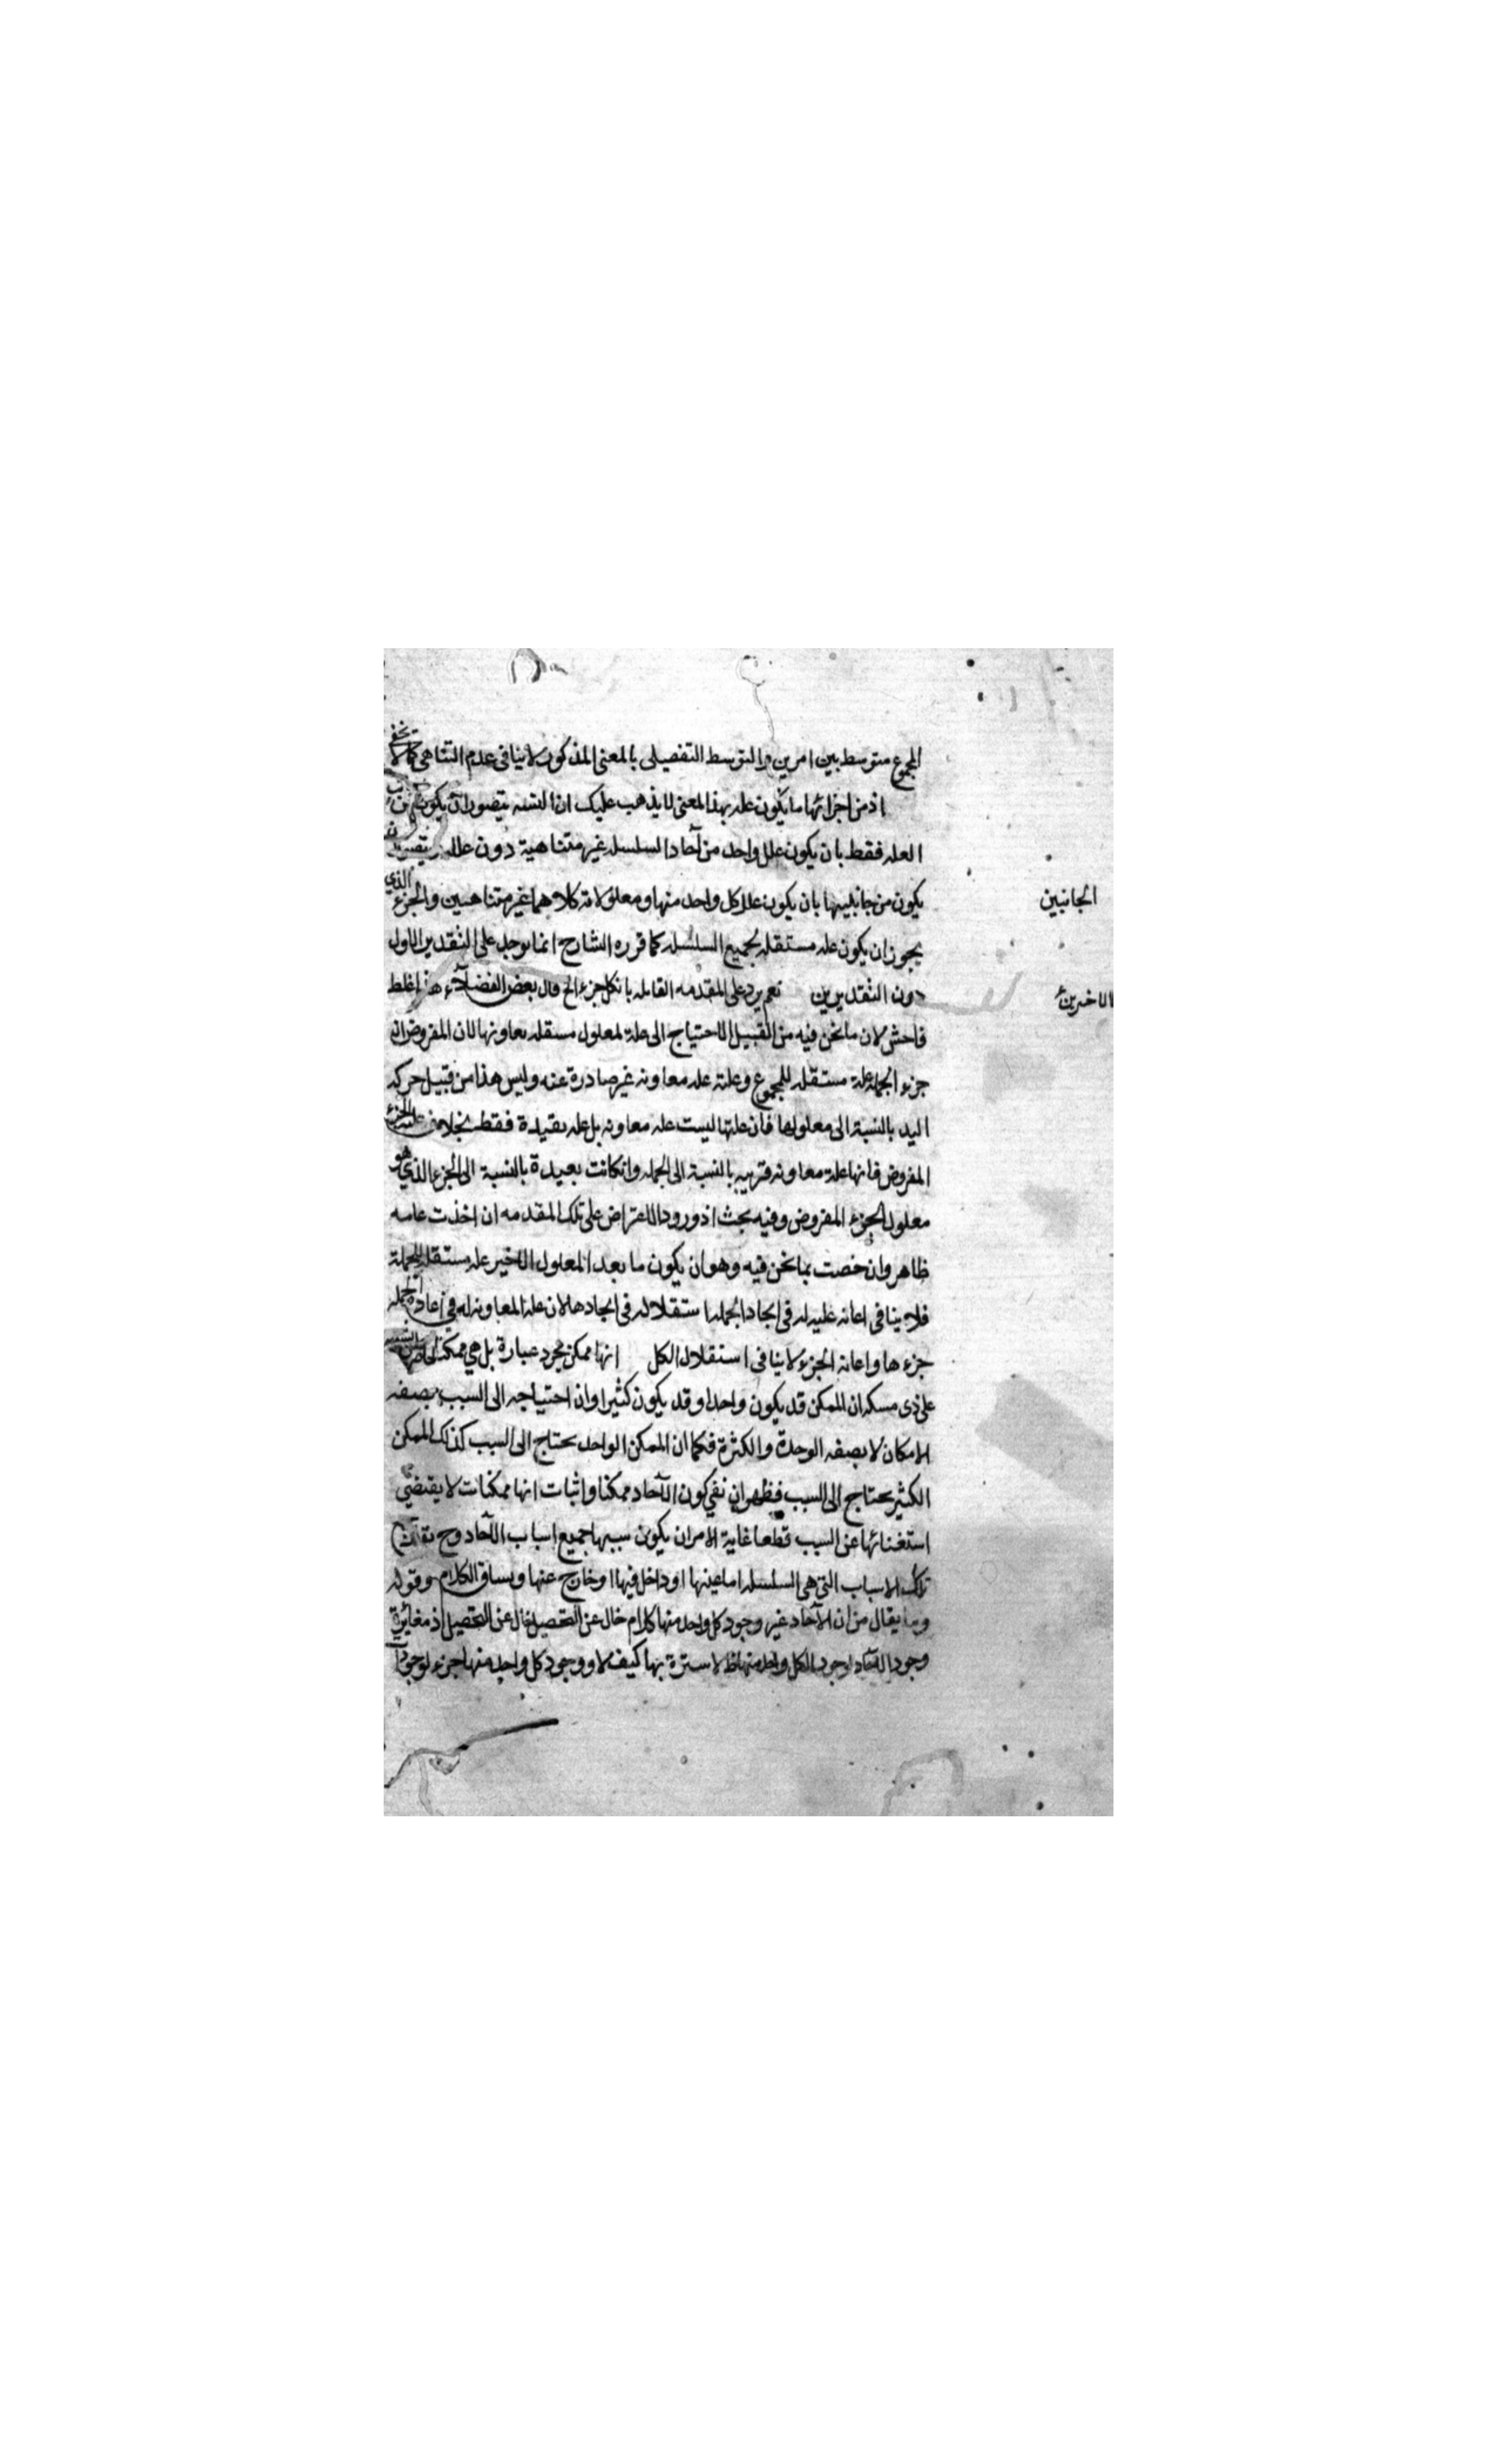 المجموع متوسط بين امرين والتوسط التفصيلى بالمعنى المذكور لاينافى عدم التناهى كما لا يخفى
اذ من اجزائها ما يكون علة بهذا المعنى لا يذهب عليك ان يتصور ان يكون من
العلة فقط بان يكون علل واحد من آحاد السلسلة غير متناهية دون
يكون من جانبيها بان يكون علل كل واحد منها ومعلولاته كلاهما غير متناهيين والجزء الذي
الجانبين
يجوز ان يكون علة مستقلة لجميع السلسلة كما قرره الشارح انما يوجد على التقدير الاول
دون التقديرين نعم يرد على المقدمة القائلة بان كل جزء الخ قال بعض الفضلاء هذا غلط
الاخرين
فاحش لان ما نحن فيه من القبيل الاحتياج الى علة لمعلول مستقلة يعاونها لان المفروض ان
جزء الجملة علة مستقلة للمجموع وعلته علة معاونة غير صادرة عنه وليس هذا من قبيل حركة
اليد بالنسبة الى معلولها فان علتها ليست علة معاونة بل علة بعيدة فقط بخلاف علة الجزء
المفروض فانها علة معاونة قريبة بالنسبة الى الجملة وان كانت بعيدة بالنسبة الى الجزء الذي هو
معلول الجزء المفروض وفيه بحث اذ ورود الاعتراض على تلك المقدمة ان اخذت عامة
ظاهر وان خصت بما نحن فيه وهو ان يكون ما بعد المعلول الاخير علة مستقلة للجملة
فلا ينافى اعانة علته له فى ايجاد الجملة استقلاله فى ايجادها لان علته المعاونة له فى الجملة
جزءها واعانة الجزء لا ينافى استقلال الكل انها ممكن مجرد عبارة بل هي ممكنة
على ذى مسكة ان الممكن قد يكون واحدا وقد يكون كثيرا وان احتياجه الى السبب بصفة
الامكان لا بصفة الوحدة والكثرة فكما ان الممكن الواحد يحتاج الى السبب كذلك الممكن
الكثير يحتاج الى السبب فظهر ان نفي كون الآحاد ممكنا واثبات انها ممكنات لا يقتضي
استغنائها عن السبب قطعا غاية الامر ان يكون سببها جميع اسباب الآحاد وح
تلك الاسباب التي هى السلسلة اما عينها او داخل فيها او خارج عنها ويساق الكلام وقوله
وما يقال من ان الآحاد غير وجود كل واحد منها كلام خال عن التحصيل خال عن التحصيل اذ مغايرة
وجود الآحاد لوجود الكل واحد منها لا سترة بها كيف لا ووجود كل واحد منها جزء لوجود